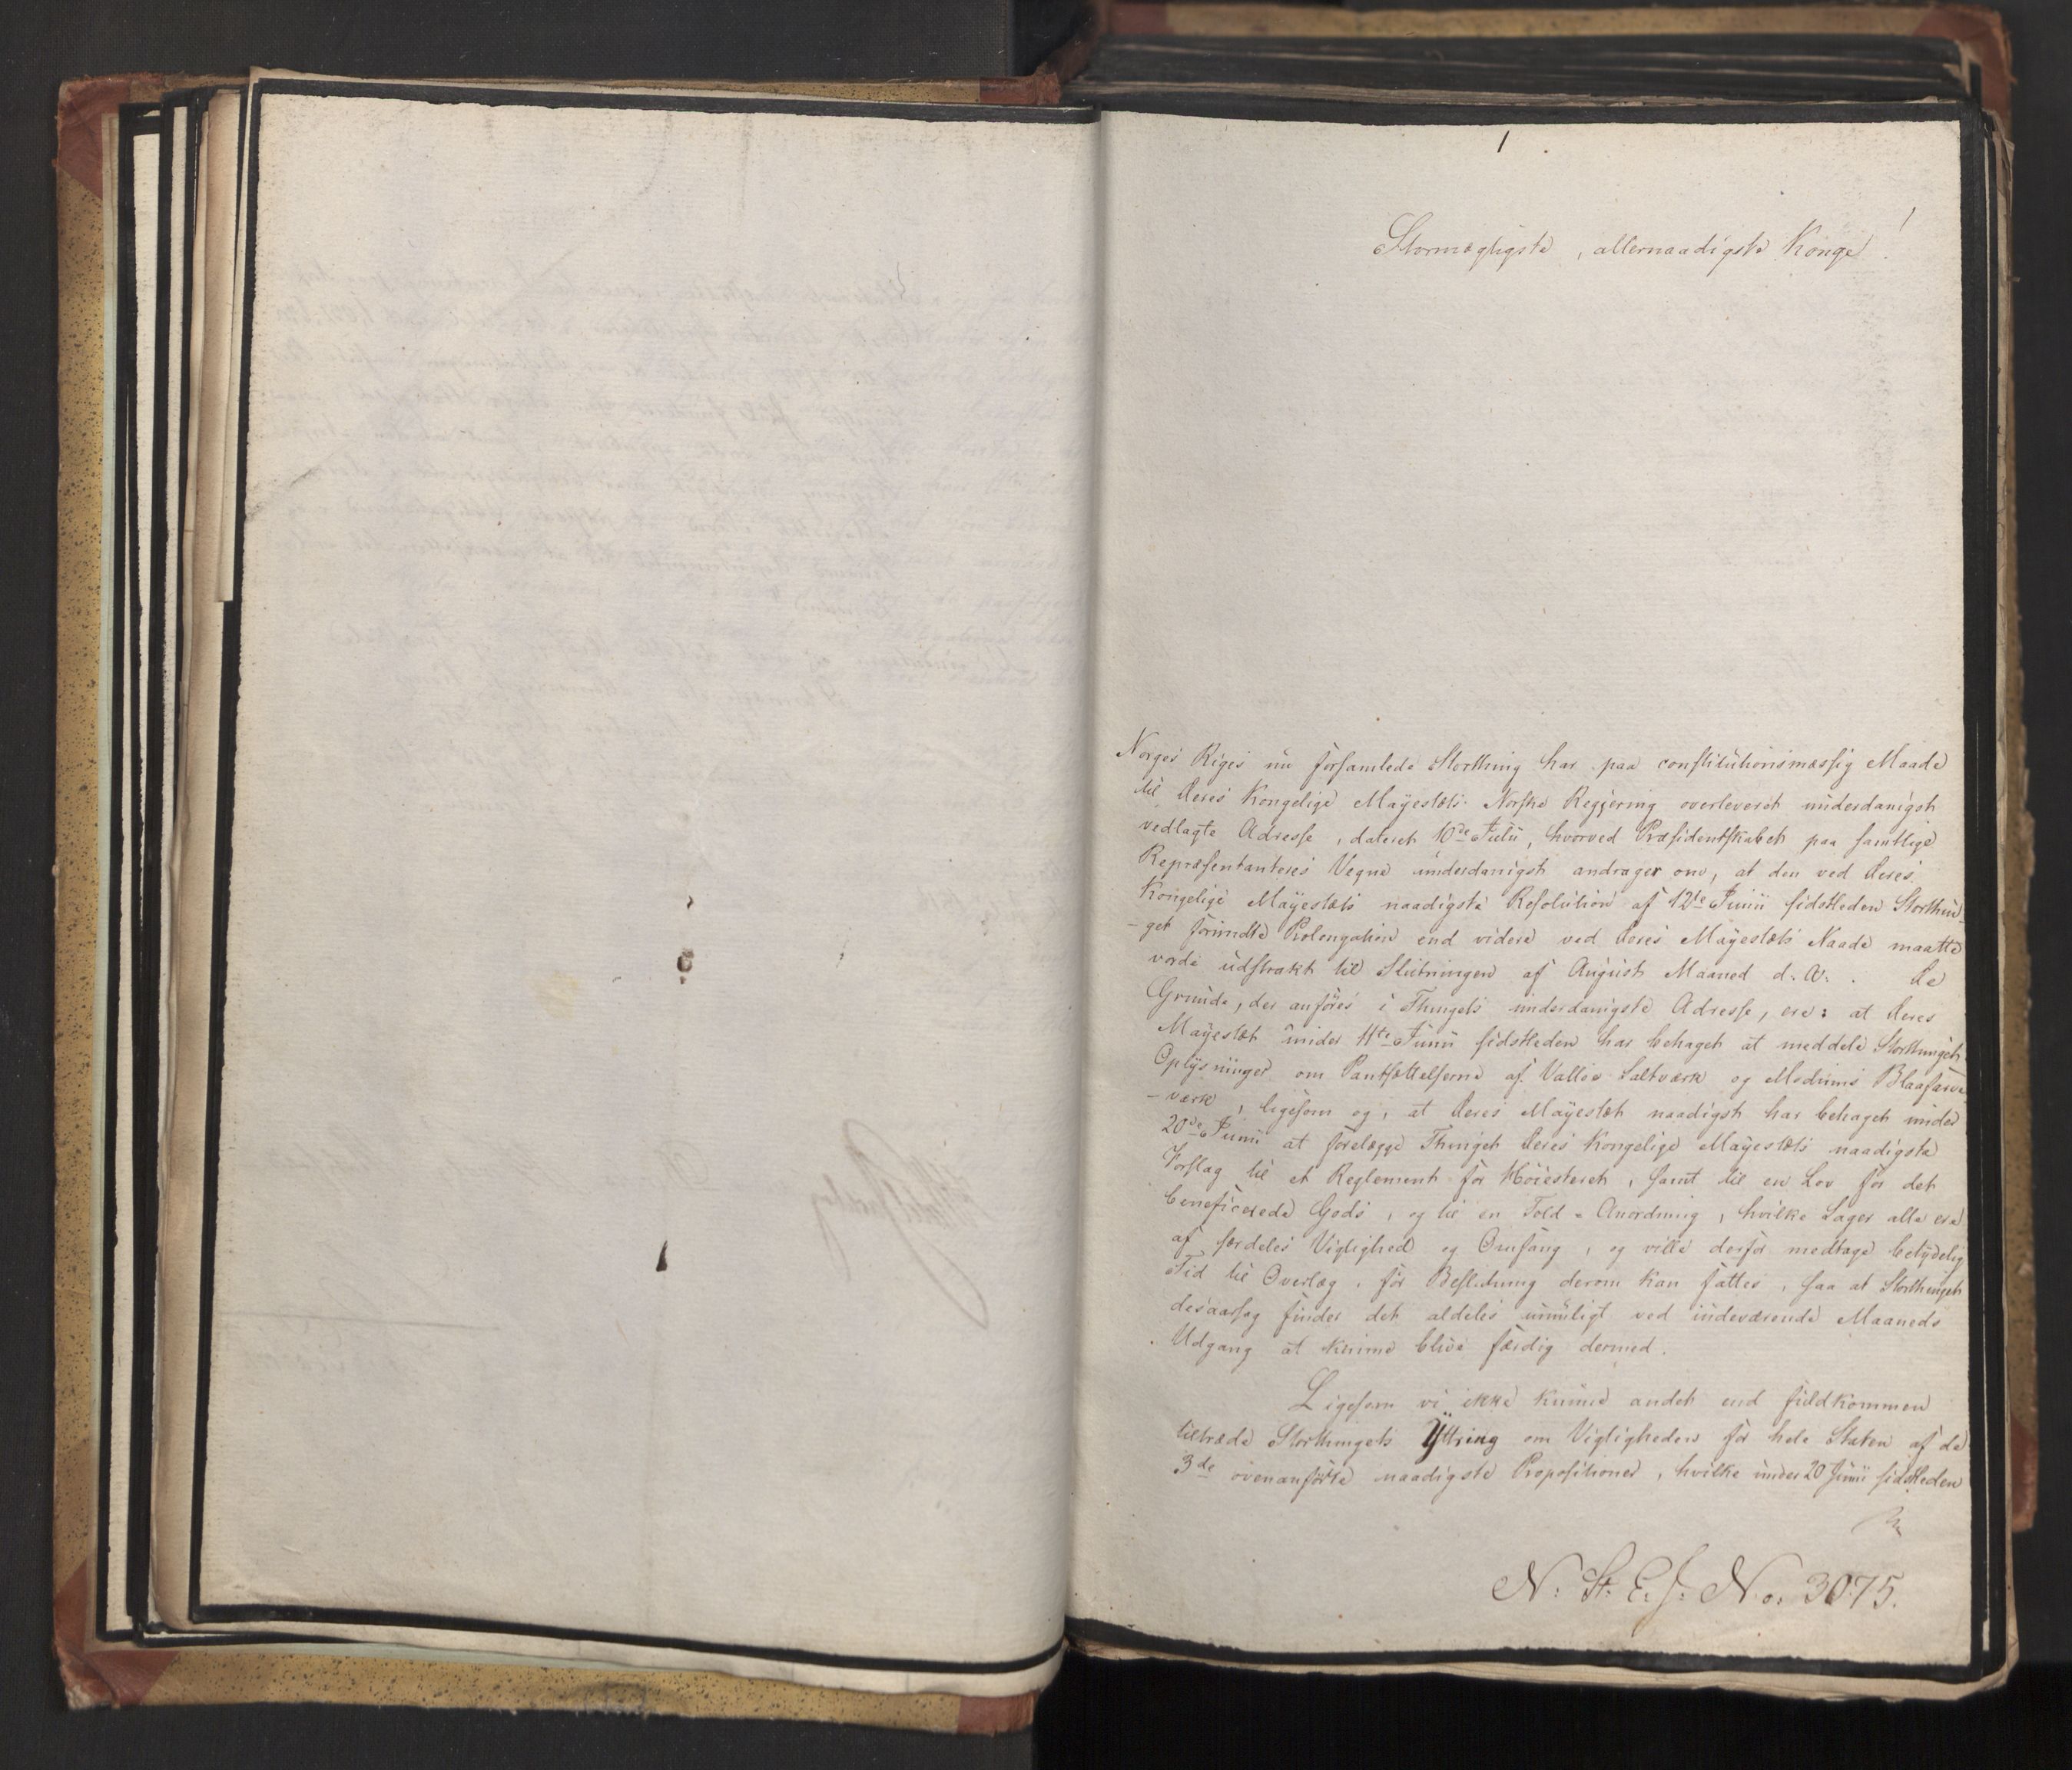 Stormægtigste, allernaadigste Konge!
Norges Riges nu forsamlede Storthing har paa constitutionsmæssig Maade
til Deres Kongelige Mayestæts Norske Regjering overleveret underdanigst
vedlagte Adresse, dateret 10de Julii, hvorved Præsidentskabet paa samtlige
Repræsentanteres Vegne underdanigst andrager om, at den ved Deres
Kongelige Mayestæts naadigste Resolution af 12te Junii sidstleden Storthin-
-get forundte Prolongation end videre ved Deres Mayestæts Naade maatte
vorde udstrakt til Slutningen af August Maaned d. A. . De
Grunde, der anföres i Thingets underdanigste Adresse, ere: at Deres
Mayestæt under 11te Junii sidstleden har behaget at meddele Storthinget
Oplysninger om Pantsættelserne af Valløe Saltværk og Modums Blaafarve-
-værk, ligesom og, at Deres Mayestæt naadigst har behaget under
20de Junii at forelægge Thinget Deres Kongelige Mayestæts naadigste
Forslag til et Reglement for Höiesteret, samt til en Lov for det
beneficerede Gods, og til en Told-Anordning, hvilke Sager alle ere
af særdeles Vigtighed og Omfang, og ville derfor medtage betydelig
Tid til Overlæg, før Beslutning derom kan fattes, saa at Storthinget
desaarsag finder det aldeles umuligt ved indeværende Maaneds
Udgang at kunne blive færdig dermed.
Ligesom vi ikke kunne andet end fuldkommen
tiltræde Storthingets Yttring om Vigtigheden for hele Staten af de
3de ovenanførte naadigste Propositioner, hvilke under 20 Junii sidstleden
N: St. E. J: No. 3075.